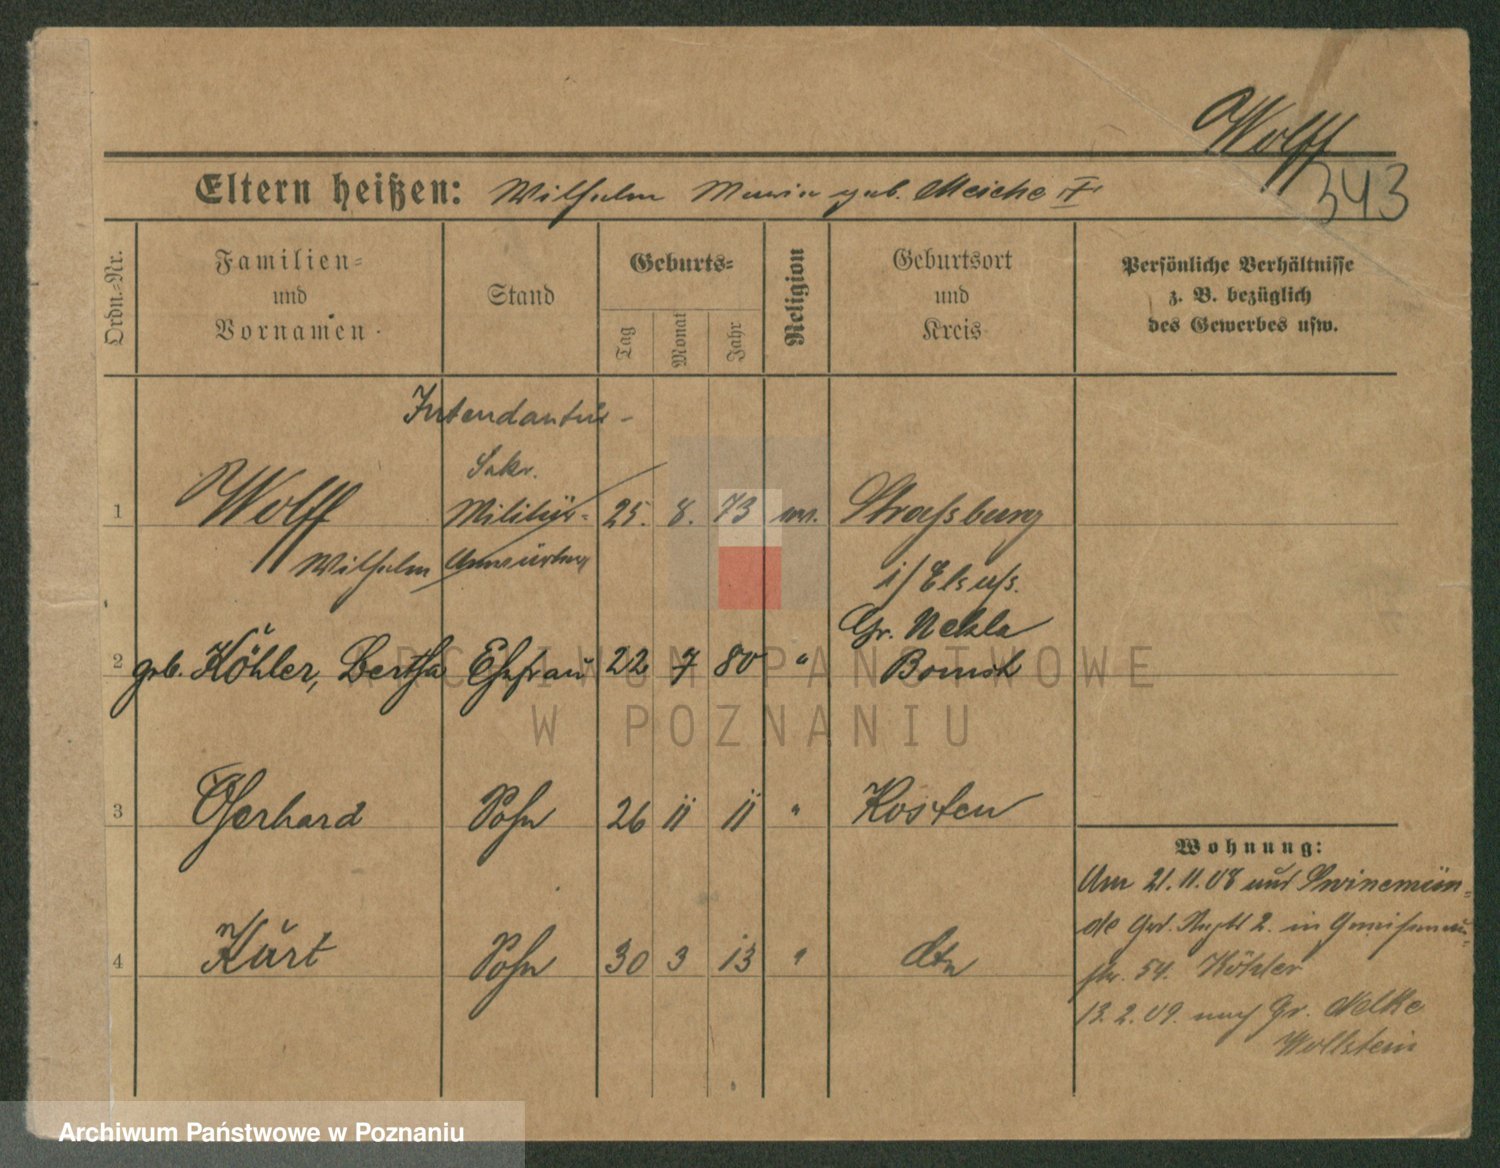 Wolff
343
Eltern heißen: Wilhelm Maria geb. Meiche
Ordn.-Nr.
Familien- und Vornamen
Stand
Geburts-
Tag
Monat
Jahr
Religion
Geburtsort und Kreis
Persönliche Verhältnisse
z. B. bezüglich
des Gewerbes usw.
Intendantur-
Sekr.
1 Wolff Militär- 25. 8. 73 ev. Strassburg
Wilhelm Anwärter i/Elsass.
Gr. Nelke
2 geb. Köhler, Bertha Ehefrau 22 7 80 " Bomst
3 Gerhard Sohn 26 11 11 " Kosten
4 Kurt Sohn 30 3 13 " dto
Wohnung:
Am 21.11.08 aus Swinemün-
de 2. in Gneisenau-
str. 54. Köhler
13.2.09. nach Gr. Nelke
Wollstein
ARCHIWUM PAŃSTWOWE
W POZNANIU
Archiwum Państwowe w Poznaniu